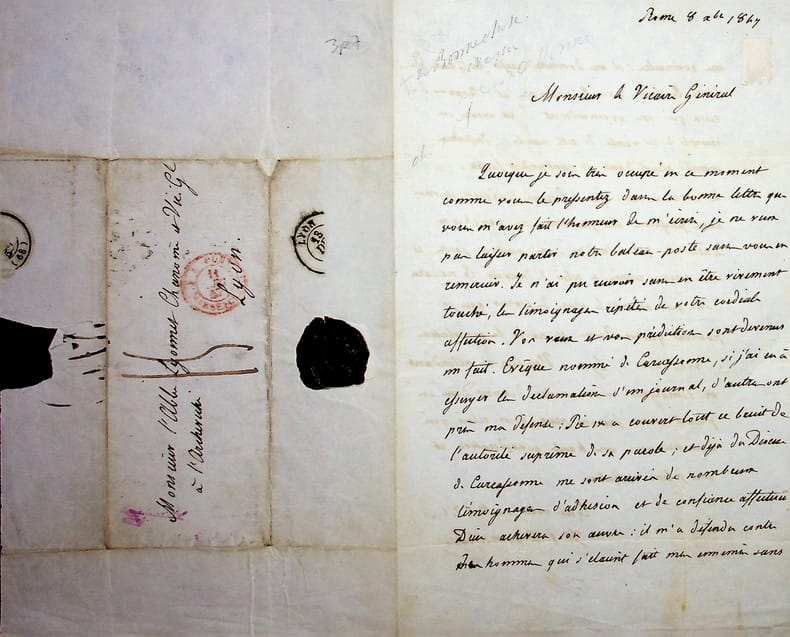 Rome 8 xbre 1847
Monsieur le Vicaire Général
Quoique je sois très occupé en ce moment
comme vous le pressentez dans la bonne lettre que
vous m'avez fait l'honneur de m'écrire, je ne veux
pas laisser partir notre bateau-poste sans vous en
remercier. Je n'ai pu recevoir sans en être vivement
touché, les témoignages répétés de votre cordiale
affection. Vos vœux et vos prédictions sont devenus
un fait. Evêque nommé de Carcassonne, si j'ai eu à
essuyer les déclamations d'un journal, d'autres ont
pris ma défense : Pie IX a couvert tout ce bruit de
l'autorité suprême de sa parole ; et déjà du Diocèse
de Carcassonne me sont arrivés de nombreux
témoignages d'adhésion et de confiance affectueuse
Dieu achèvera son œuvre : il m'a défendu contre
des hommes qui s'étaient fait mes ennemis sans
Monsieur l'Abbé Lyonnet Chanoine et Vic. Gl
à l'Archevêché
Lyon.
15
LYON